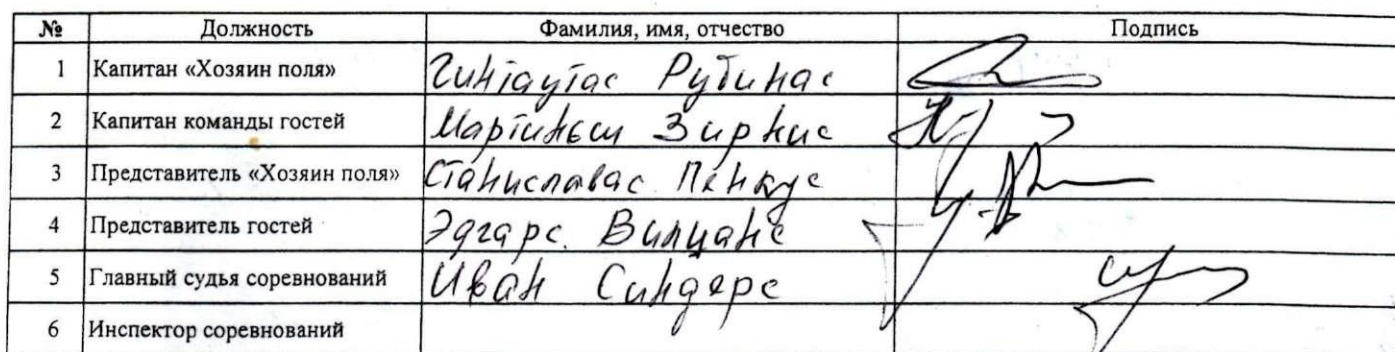 № Должность Фамилия, имя, отчество Подпись
1 Капитан «Хозяин поля» Гинтаутас Рутинас
2 Капитан команды гостей Мартиньш Зирнис
3 Представитель «Хозяин поля» Станиславас Пенкус
4 Представитель гостей Эдгарс. Вилцанс
5 Главный судья соревнований Иван Синдерс
6 Инспектор соревнований